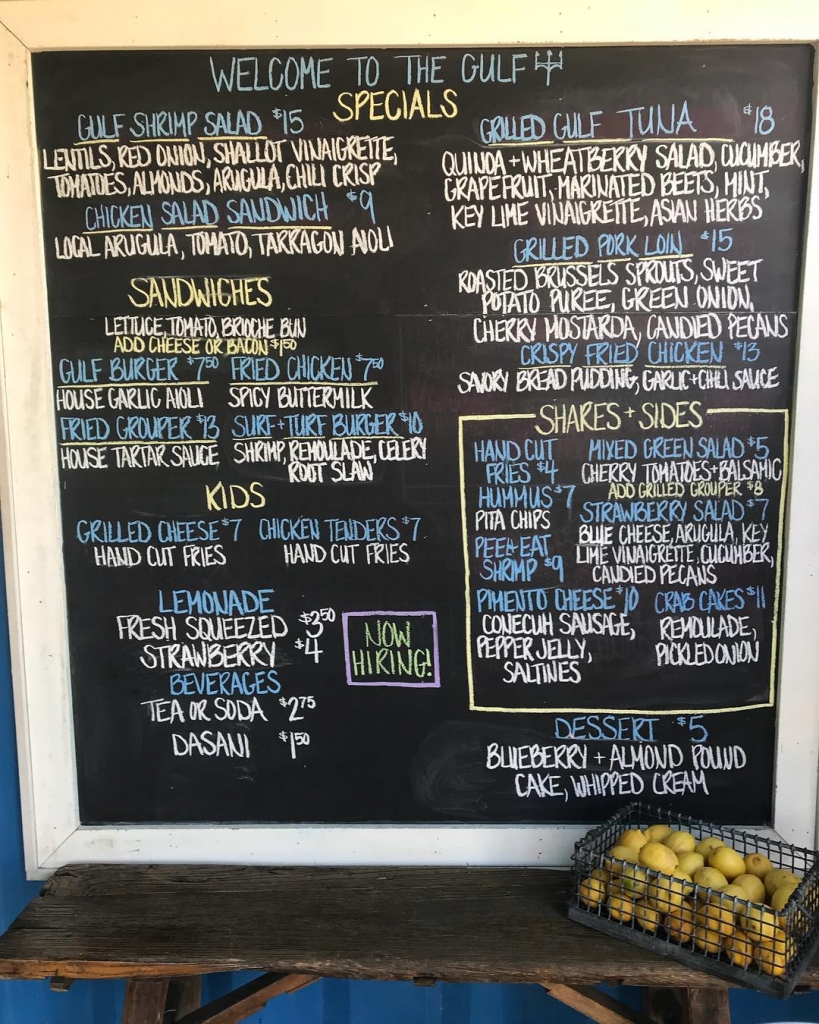 WELCOME TO THE GULF
SPECIALS
GULF SHRIMP SALAD $15
LENTILS, RED ONION, SHALLOT VINAIGRETTE,
TOMATOES, ALMONDS, ARUGULA, CHILI CRISP
CHICKEN SALAD SANDWICH $9
LOCAL ARUGULA, TOMATO, TARRAGON AIOLI
SANDWICHES
LETTUCE, TOMATO, BRIOCHE BUN
ADD CHEESE OR BACON $1.50
GULF BURGER $7.50 FRIED CHICKEN $7.50
HOUSE GARLIC AIOLI SPICY BUTTERMILK
FRIED GROUPER $13 SURF + TURF BURGER $10
HOUSE TARTAR SAUCE SHRIMP, REMOULADE, CELERY
ROOT SLAW
KIDS
GRILLED CHEESE $7 CHICKEN TENDERS $7
HAND CUT FRIES HAND CUT FRIES
LEMONADE
FRESH SQUEEZED $3.50
STRAWBERRY $4
BEVERAGES
TEA OR SODA $2.75
DASANI $1.50
NOW
HIRING!
GRILLED GULF TUNA $18
QUINOA + WHEATBERRY SALAD, CUCUMBER,
GRAPEFRUIT, MARINATED BEETS, MINT,
KEY LIME VINAIGRETTE, ASIAN HERBS
GRILLED PORK LOIN $15
ROASTED BRUSSELS SPROUTS, SWEET
POTATO PUREE, GREEN ONION,
CHERRY MOSTARDA, CANDIED PECANS
CRISPY FRIED CHICKEN $13
SAVORY BREAD PUDDING, GARLIC + CHILI SAUCE
SHARES + SIDES
HAND CUT
FRIES $4
HUMMUS $7
PITA CHIPS
PEEL + EAT
SHRIMP $9
MIXED GREEN SALAD $5
CHERRY TOMATOES + BALSAMIC
ADD GRILLED GROUPER $8
STRAWBERRY SALAD $7
BLUE CHEESE, ARUGULA, KEY
LIME VINAIGRETTE, CUCUMBER,
CANDIED PECANS
PIMENTO CHEESE $10
CONECUH SAUSAGE,
PEPPER JELLY,
SALTINES
CRAB CAKES $11
REMOULADE,
PICKLED ONION
DESSERT $5
BLUEBERRY + ALMOND POUND
CAKE, WHIPPED CREAM